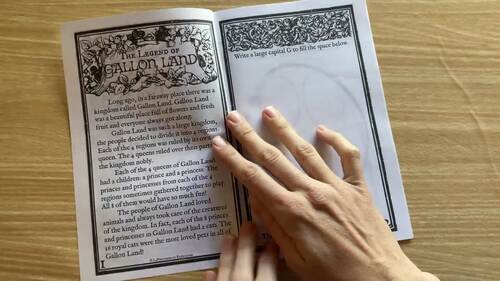 The Legend of
Gallon Land
Long ago, in a faraway place there was a
kingdom called Gallon Land. Gallon Land
was a beautiful place full of flowers and fresh
fruit and everyone always got along.
Gallon Land was such a large kingdom,
the people decided to divide it into 4 regions.
Each of the 4 regions was ruled by its own
queen. The 4 queens ruled over their part of
the kingdom nobly.
Each of the 4 queens of Gallon Land
had 2 children: a prince and a princess. The
princes and princesses from each of the 4
regions sometimes gathered together to play.
All 8 of them would have so much fun!
The people of Gallon Land loved
animals and always took care of the creatures
of the kingdom. In fact, each of the 8 princes
and princesses in Gallon Land had 2 cats. The
16 royal cats were the most loved pets in all of
Gallon Land!
1
Write a large capital G to fill the space below.